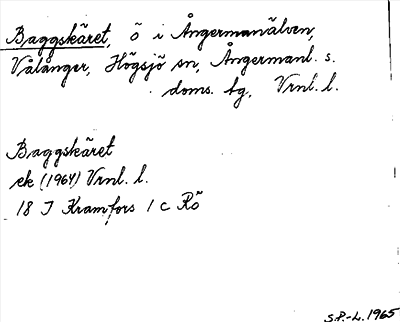 Baggskäret, ö i Ångermanälven,
Vålånger, Högsjö sn, Ångermanl. s.
doms. tg, Vrnl. l.
Baggskäret
ek (1964) Vrnl. l.
18 I Kramfors 1 c Rö
S.P.-L. 1965